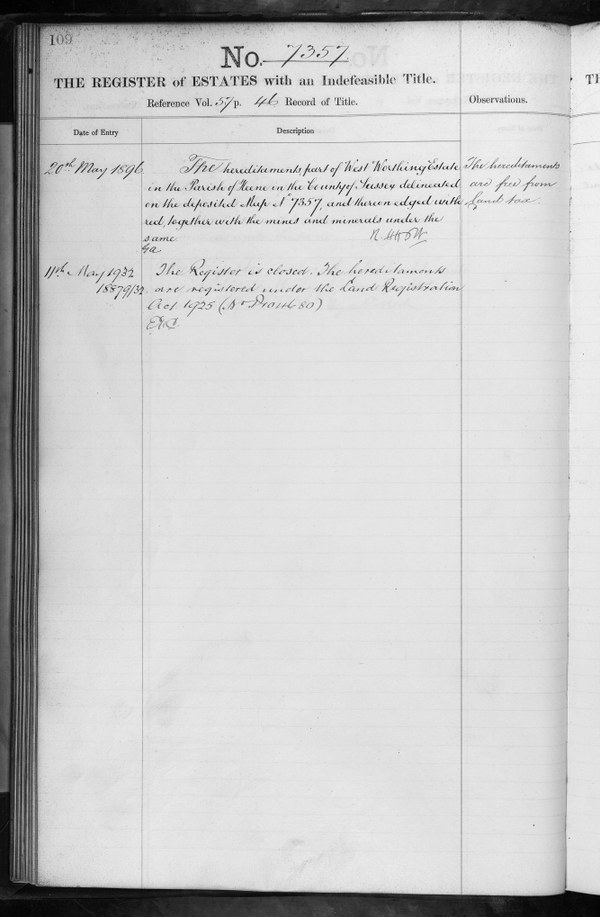 109
No. 7357
THE REGISTER of ESTATES with an Indefeasible Title.
Reference Vol. 57 p. 46 Record of Title.
Observations.
Date of Entry
Description
20th May 1896
The hereditaments part of West Worthing Estate
in the Parish of Heene in the County of Sussex delineated
on the deposited Map No 7357, and thereon edged with
red, together with the mines and minerals under the
same
The hereditaments
are free from
Land tax.
11th May 1932
18879/32
The Register is closed. The hereditaments
are registered under the Land Registration
Act 1925